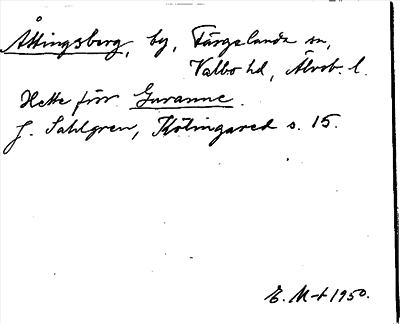 Åttingsberg, by, Färgelanda sn,
Valbo hd, Älvsb. l.
Hette förr Guranne.
J. Sahlgren, Kölingared s. 15.
E. M-t 1950.